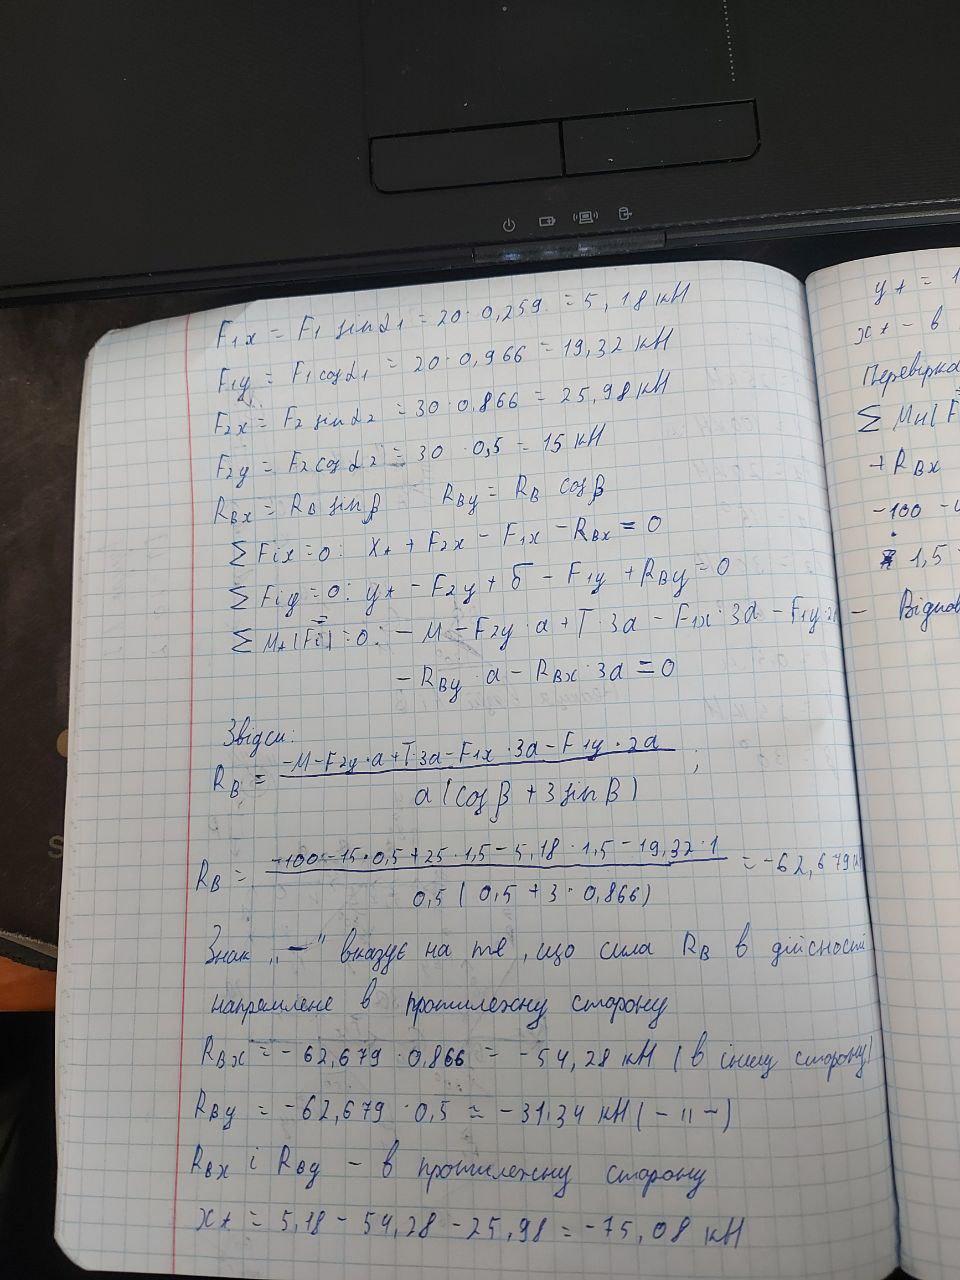 F1x = F1 sinα1 = 20·0,259 = 5,18 кН
F1y = F1 cosα1 = 20·0,966 = 19,32 кН
F2x = F2 sinα2 = 30·0.866 = 25,98 кН
F2y = F2 cosα2 = 30·0,5 = 15 кН
RBx = RB sinβ RBy = RB cosβ
∑Fix=0: XA + F2x - F1x - RBx = 0
∑Fiy=0: yA - F2y + б - F1y + RBy = 0
∑MA(Fi)=0: - M - F2y·a + T·3a - F1x·3a - F1y·2a -
- RBy·a - RBx·3a = 0
Звідси:
RB = -M-F2y·a+T·3a-F1x·3a-F1y·2a ;
a(cosβ + 3sinβ)
RB = -100-15·0,5+25·1,5-5,18·1,5-19,32·1 = -62,679
0,5(0,5+3·0,866)
Знак „-" вказує на те, що сила RB в дійсності
направлене в протилежну сторону
RBx = -62,679·0,866 = -54,28 кН (в іншу сторону)
RBy = -62,679·0,5 = -31.34 кН (-11-)
RBx і RBy - в протилежну сторону
xA = 5,18-54,28-25,98 = -75,08 кН
yA = 1
xA - в
Перевірка
∑MH(F
+RBx
-100 -
1,5